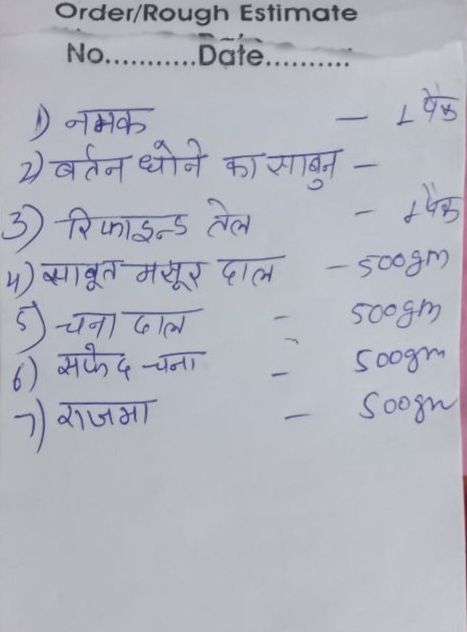 Order/Rough Estimate
No...........Date..........
1) नमक — 1 पैक
2) बर्तन धोने का साबुन –
3) रिफाइन्ड तेल – 1 पैक
4) साबूत मसूर दाल – 500gm
5) चना दाल – 500gm
6) सफेद चना – 500gm
7) राजमा – 500gm